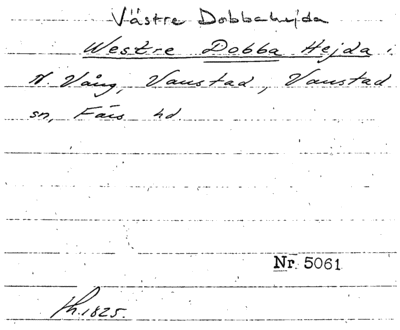 Västre Dobbahejda
Westre Dobba Hejda.
N Vång, Vanstad, Vanstad
sn, Färs hd
Nr 5061
h.1825.